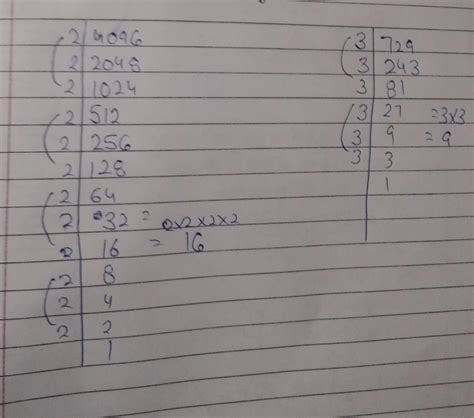 2 4096
2 2048
2 1024
2 512
2 256
2 128
2 64
2 32 = 2x2x2x2
2 16 = 16
2 8
2 4
2 2
1
3 729
3 243
3 81
3 27 =3x3
3 9 = 9
3 3
1